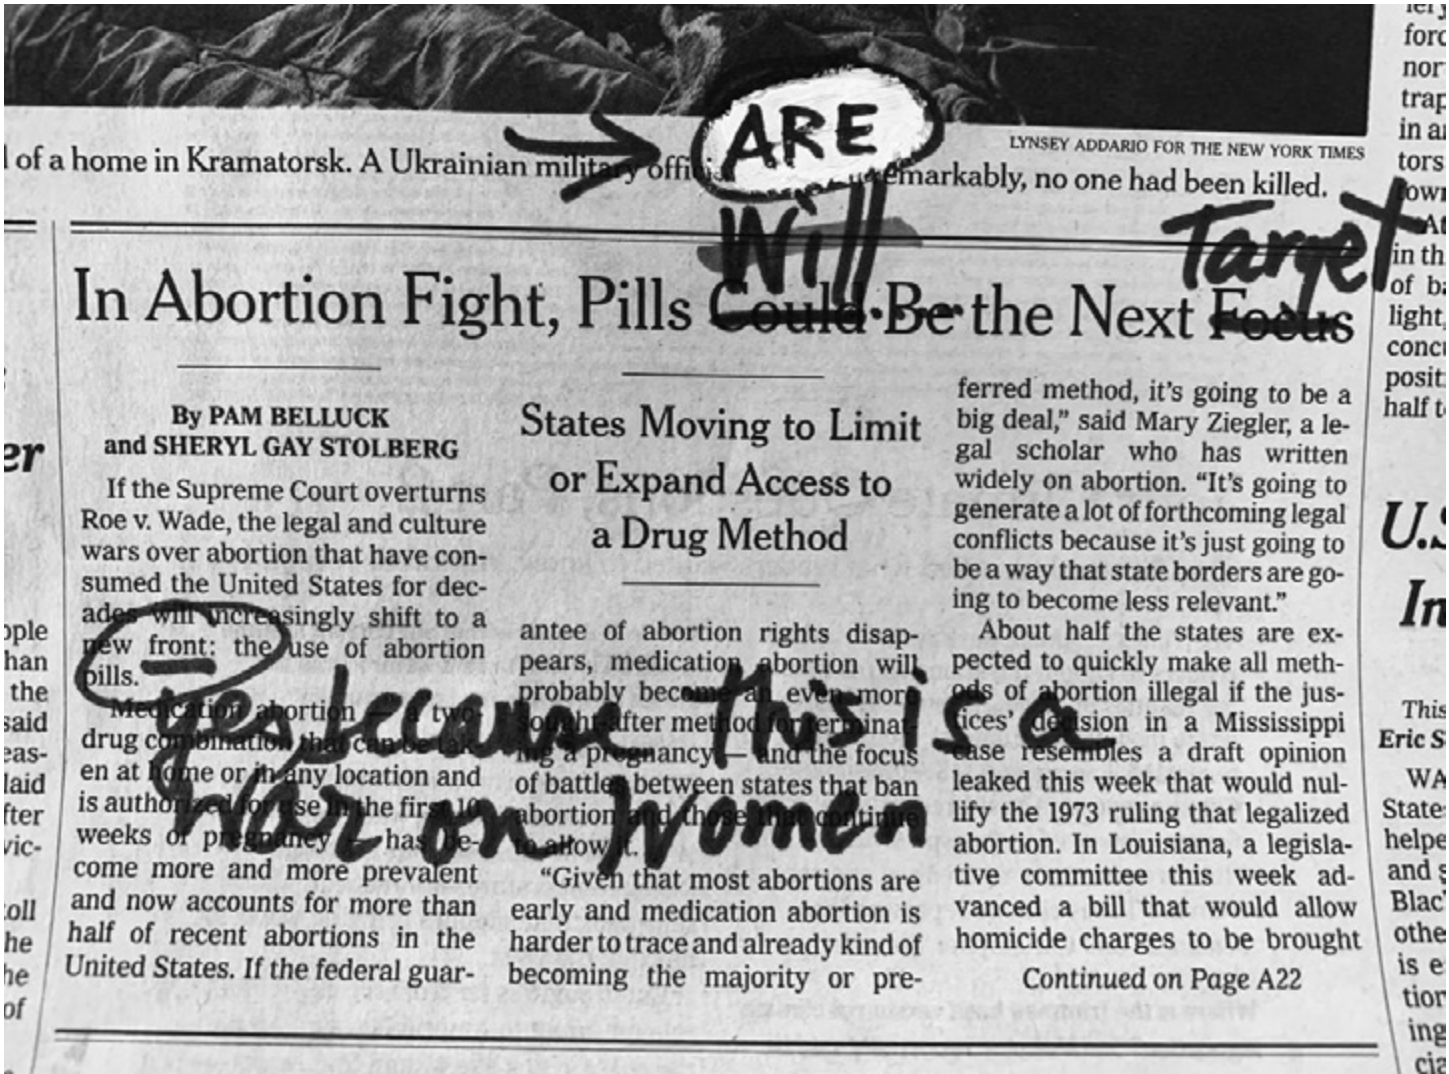 ARE
LYNSEY ADDARIO FOR THE NEW YORK TIMES
of a home in Kramatorsk. A Ukrainian military emarkably, no one had been killed.
Will
Target
In Abortion Fight, Pills Could Be the Next Focus
By PAM BELLUCK
and SHERYL GAY STOLBERG
If the Supreme Court overturns
Roe v. Wade, the legal and culture
wars over abortion that have con-
sumed the United States for dec-
ades will increasingly shift to a
new front: the use of abortion
pills.
Medication abortion — a two-
drug combination that can be tak-
en at home or in any location and
is authorized for use in the first 10
weeks of pregnancy — has be-
come more and more prevalent
and now accounts for more than
half of recent abortions in the
United States. If the federal guar-
States Moving to Limit
or Expand Access to
a Drug Method
antee of abortion rights disap-
pears, medication abortion will
probably become an even more
sought-after method for terminat-
ing a pregnancy — and the focus
of battles between states that ban
abortion and those that continue
to allow it.
“Given that most abortions are
early and medication abortion is
harder to trace and already kind of
becoming the majority or pre-
ferred method, it’s going to be a
big deal,” said Mary Ziegler, a le-
gal scholar who has written
widely on abortion. “It’s going to
generate a lot of forthcoming legal
conflicts because it’s just going to
be a way that state borders are go-
ing to become less relevant.”
About half the states are ex-
pected to quickly make all meth-
ods of abortion illegal if the jus-
tices’ decision in a Mississippi
case resembles a draft opinion
leaked this week that would nul-
lify the 1973 ruling that legalized
abortion. In Louisiana, a legisla-
tive committee this week ad-
vanced a bill that would allow
homicide charges to be brought
Continued on Page A22
Yes because this is a
War on Women
er
ople
han
the
said
eas-
laid
fter
vic-
oll
he
he
of
forc
nor
trap
in a
tors
town
At
in th
of ba
light,
conc
posit
half t
U.S
In
This
Eric S
WA
States
helpe
and s
Blac
othe
is e
tion
ing
cia